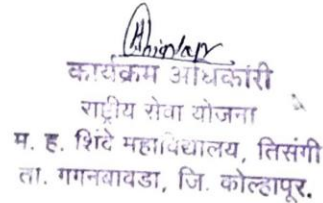 कार्यक्रम अधिकारी
राष्ट्रीय सेवा योजना
म. ह. शिंदे महाविद्यालय, तिसंगी
ता. गगनबावडा, जि. कोल्हापूर.